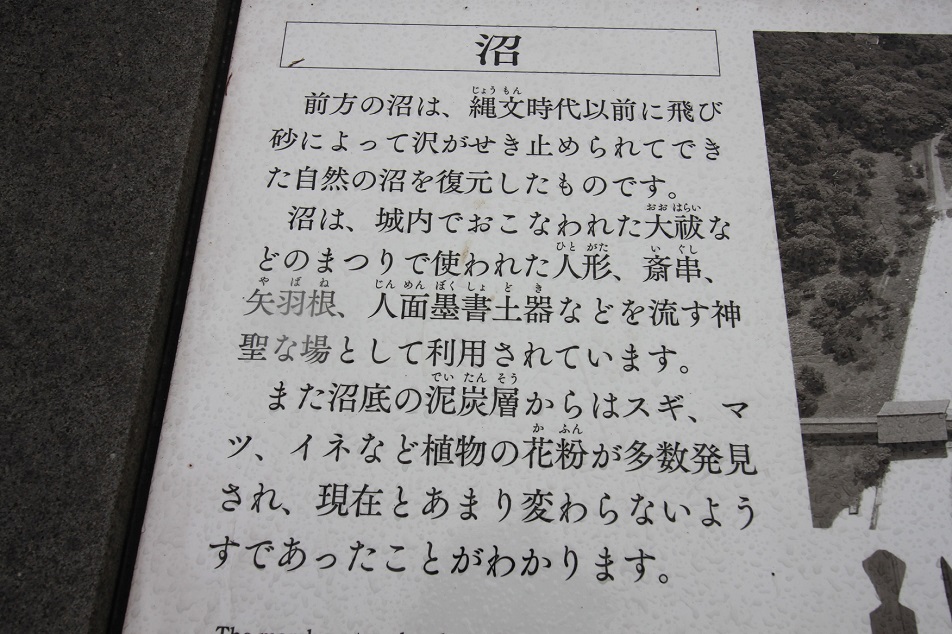 沼
前方の沼は、縄文時代以前に飛び
砂によって沢がせき止められてでき
た自然の沼を復元したものです。
沼は、城内でおこなわれた大祓な
どのまつりで使われた人形、斎串、
矢羽根、人面墨書土器などを流す神
聖な場として利用されています。
また沼底の泥炭層からはスギ、マ
ツ、イネなど植物の花粉が多数発見
され、現在とあまり変わらないよう
すであったことがわかります。